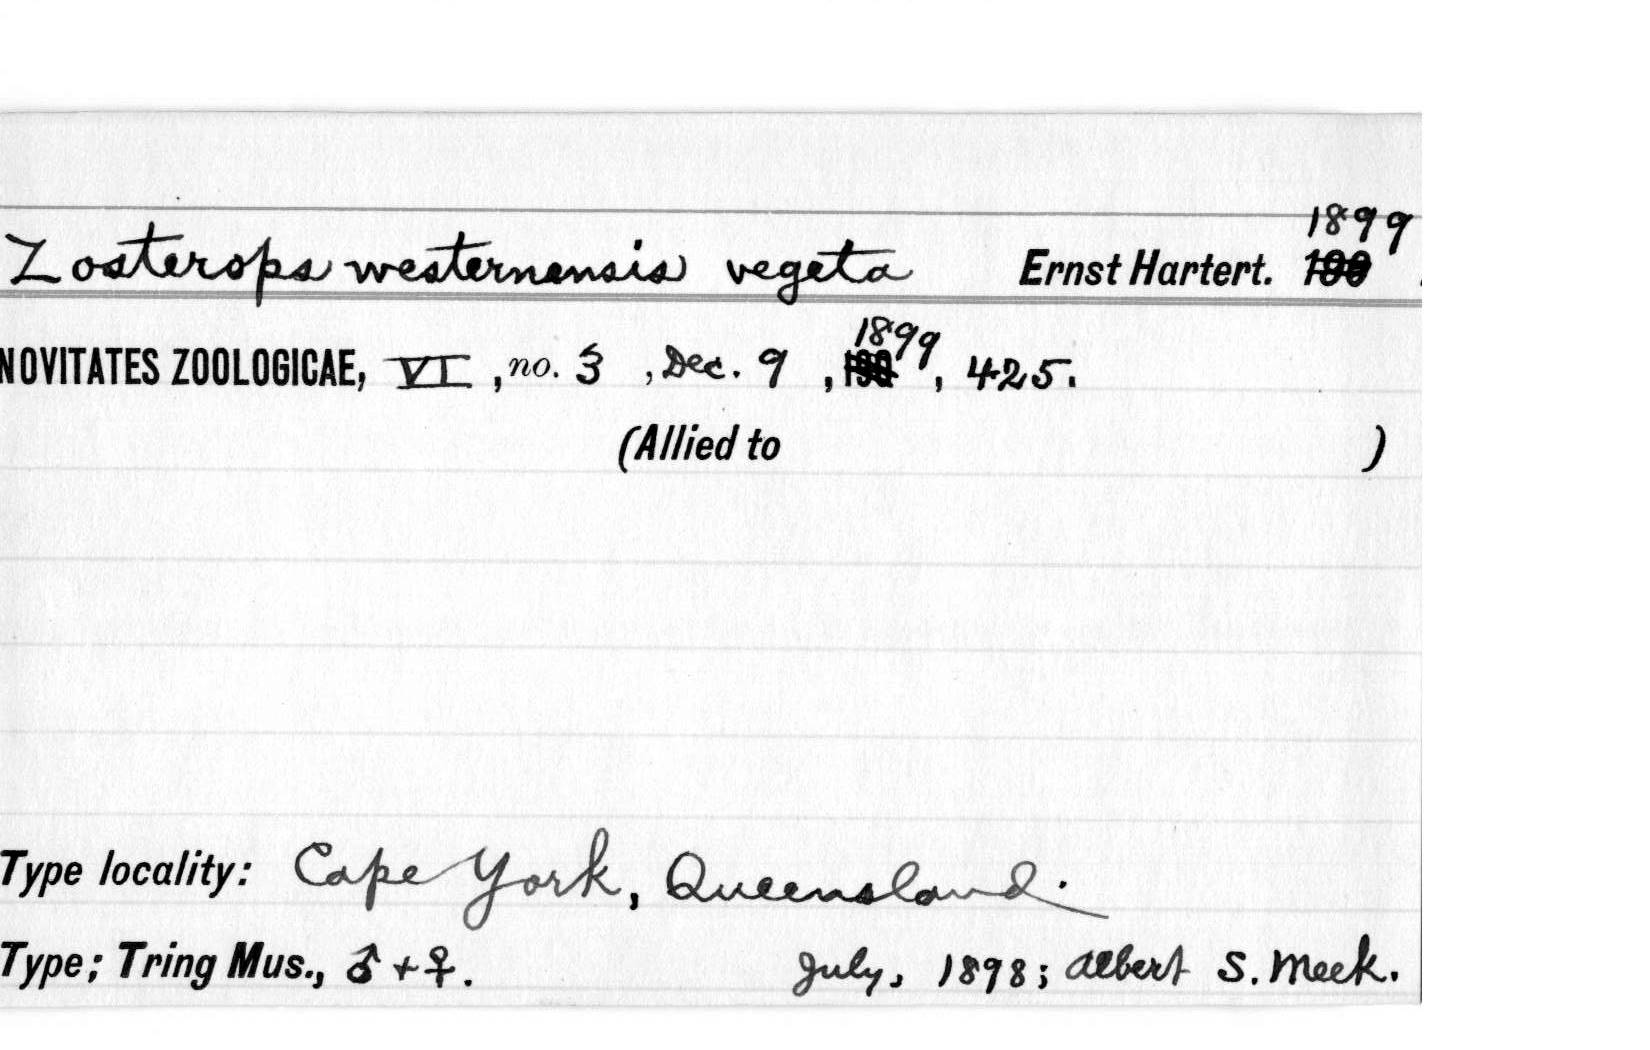 Zosterops westernensis vegeta Ernst Hartert. 1899
NOVITATES ZOOLOGICAE, VI, no. 3, Dec. 9, 1899, 425.
(Allied to )
Type locality: Cape York, Queensland.
Type; Tring Mus., ♂ + ♀. July, 1898; Albert S. Meek.